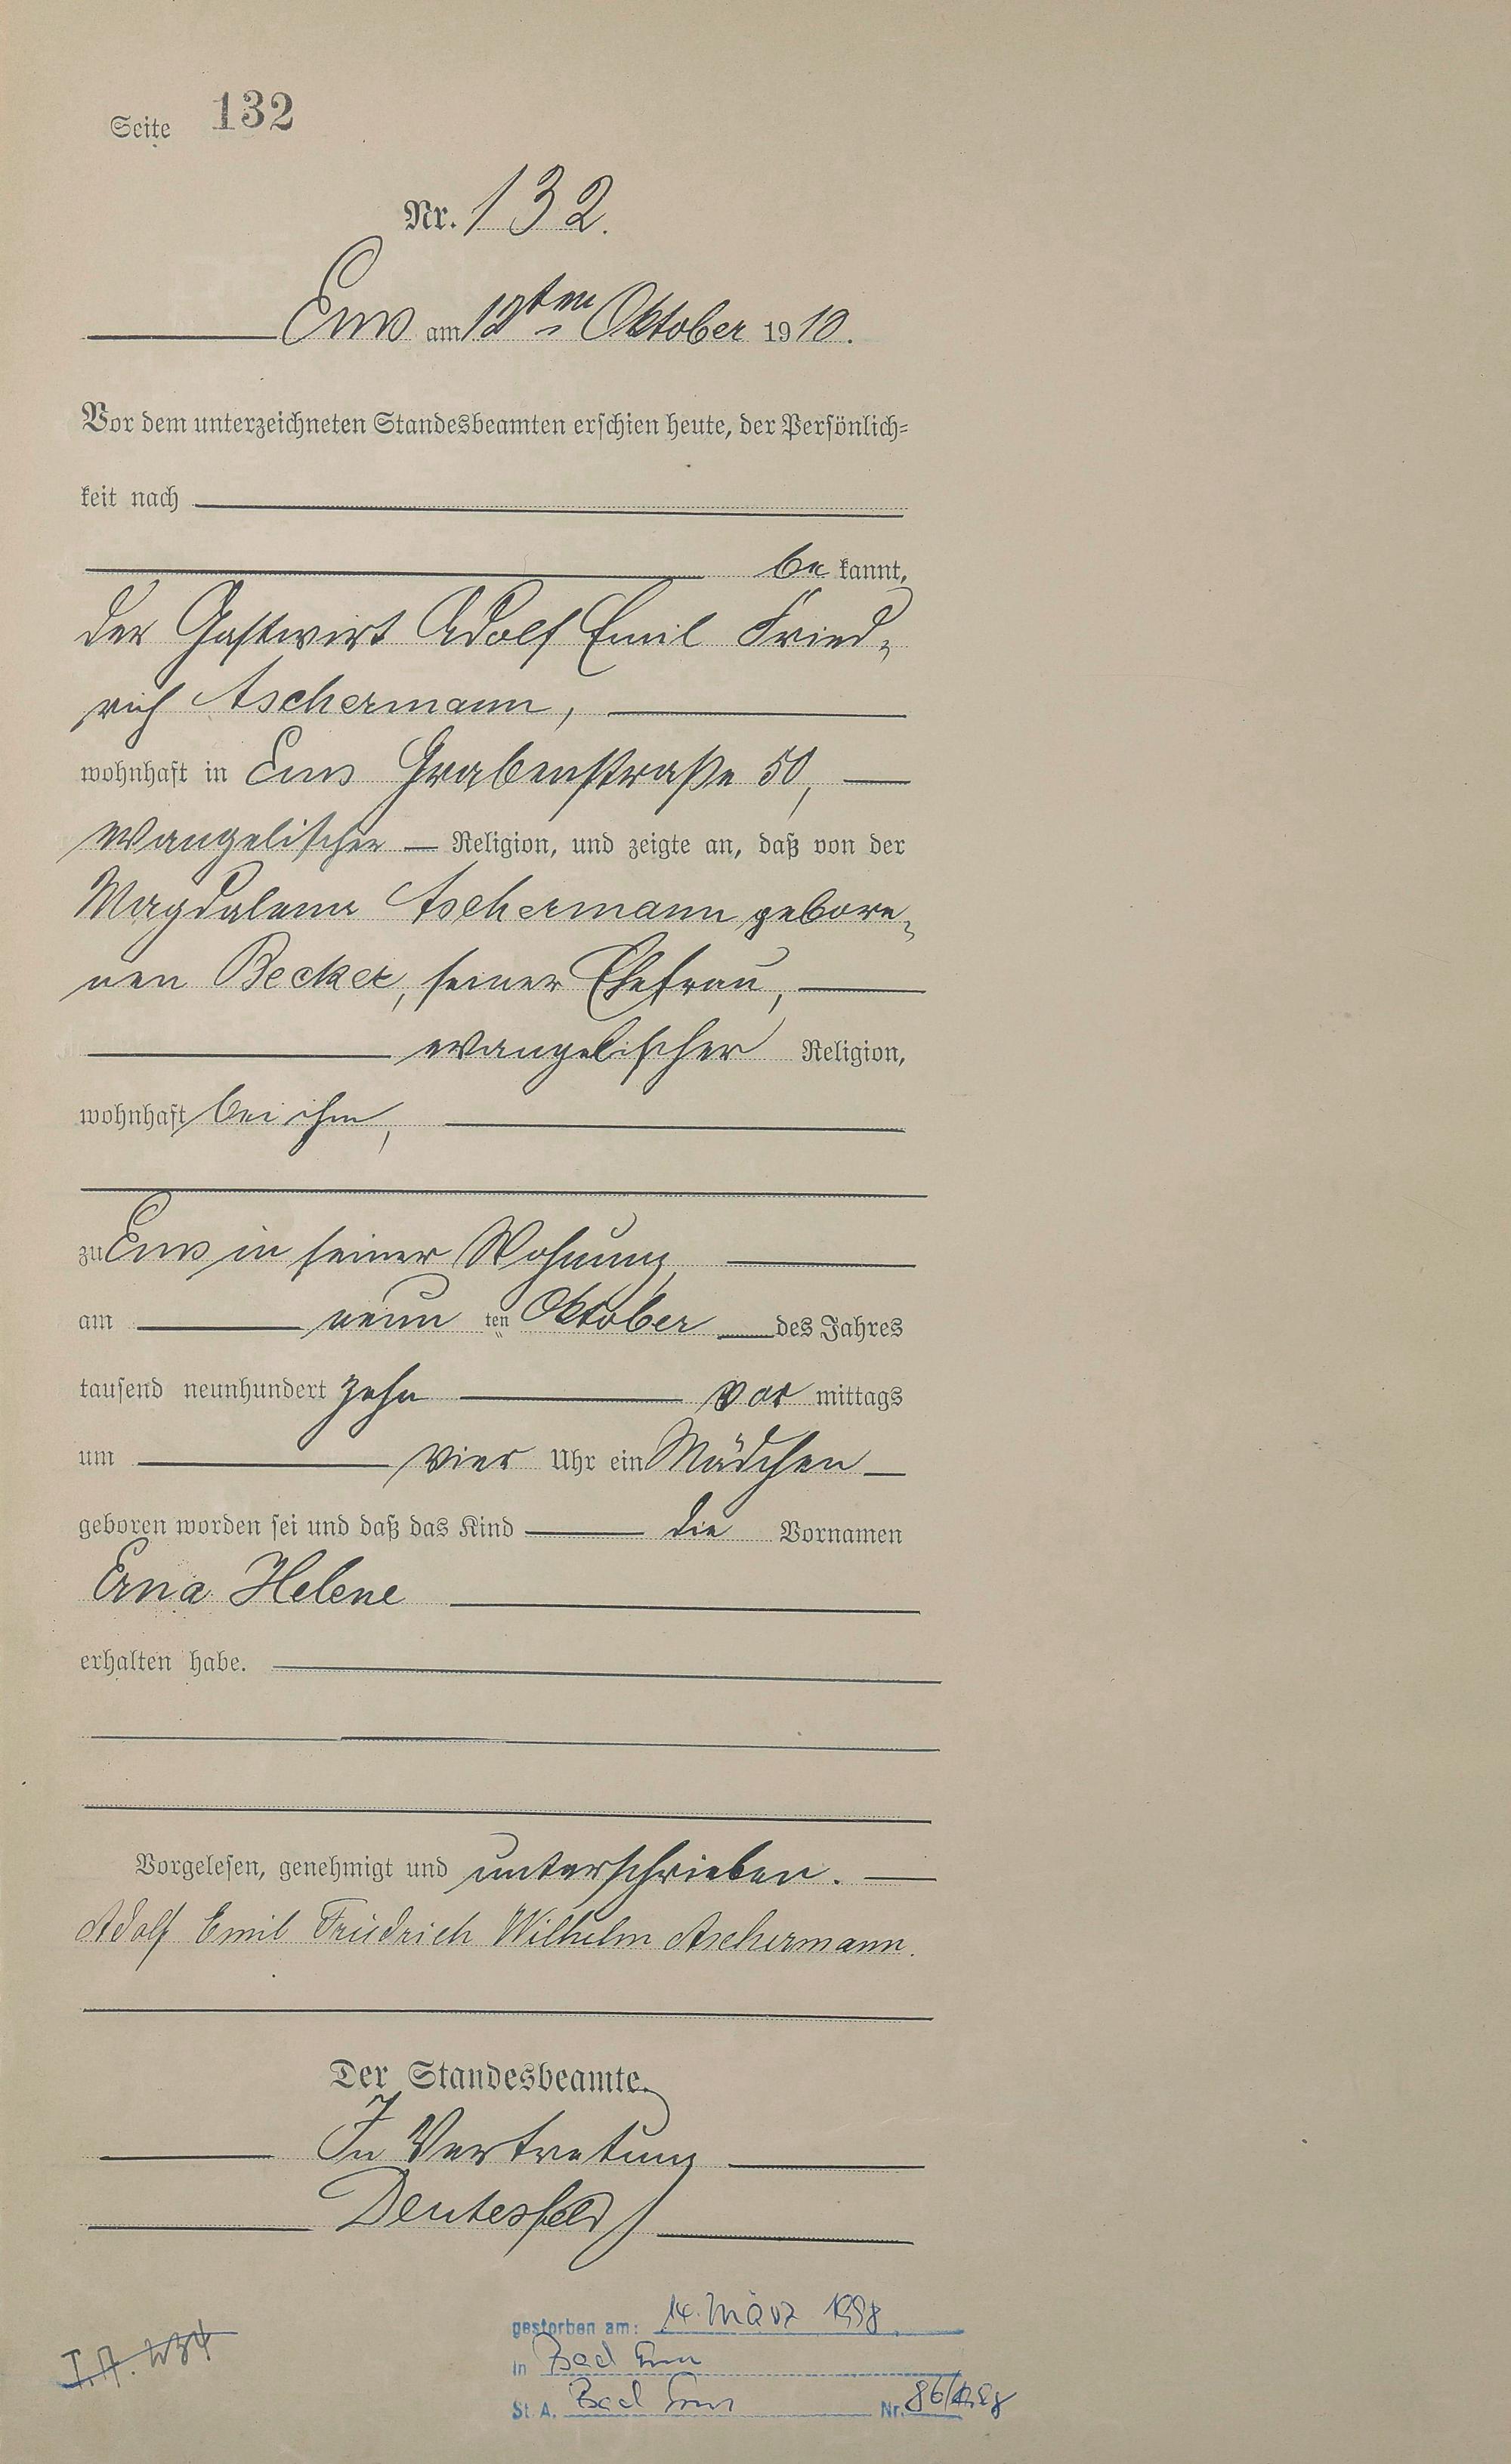 Seite 132
Nr. 132.
Ems am 12ten Oktober 1910.
Vor dem unterzeichneten Standesbeamten erschien heute, der Persönlich-
keit nach
be kannt,
der Gastwirt Adolf Emil Fried-
rich Aschermann,
wohnhaft in Ems Grabenstraße 50,
evangelischer Religion, und zeigte an, daß von der
Magdalena Aschermann gebore-
nen Becker, seiner Ehefrau,
evangelischer Religion,
wohnhaft bei ihm,
zu Ems in seiner Wohnung,
am neun ten Oktober des Jahres
tausend neunhundert zehn vor mittags
um vier Uhr ein Mädchen
geboren worden sei und daß das Kind die Vornamen
Erna Helene
erhalten habe.
Vorgelesen, genehmigt und unterschrieben.
Adolf Emil Friedrich Wilhelm Aschermann.
Der Standesbeamte.
In Vertretung
gestorben am: 14. März 1998
in Bad Ems
St. A. Bad Ems Nr. 86/1998